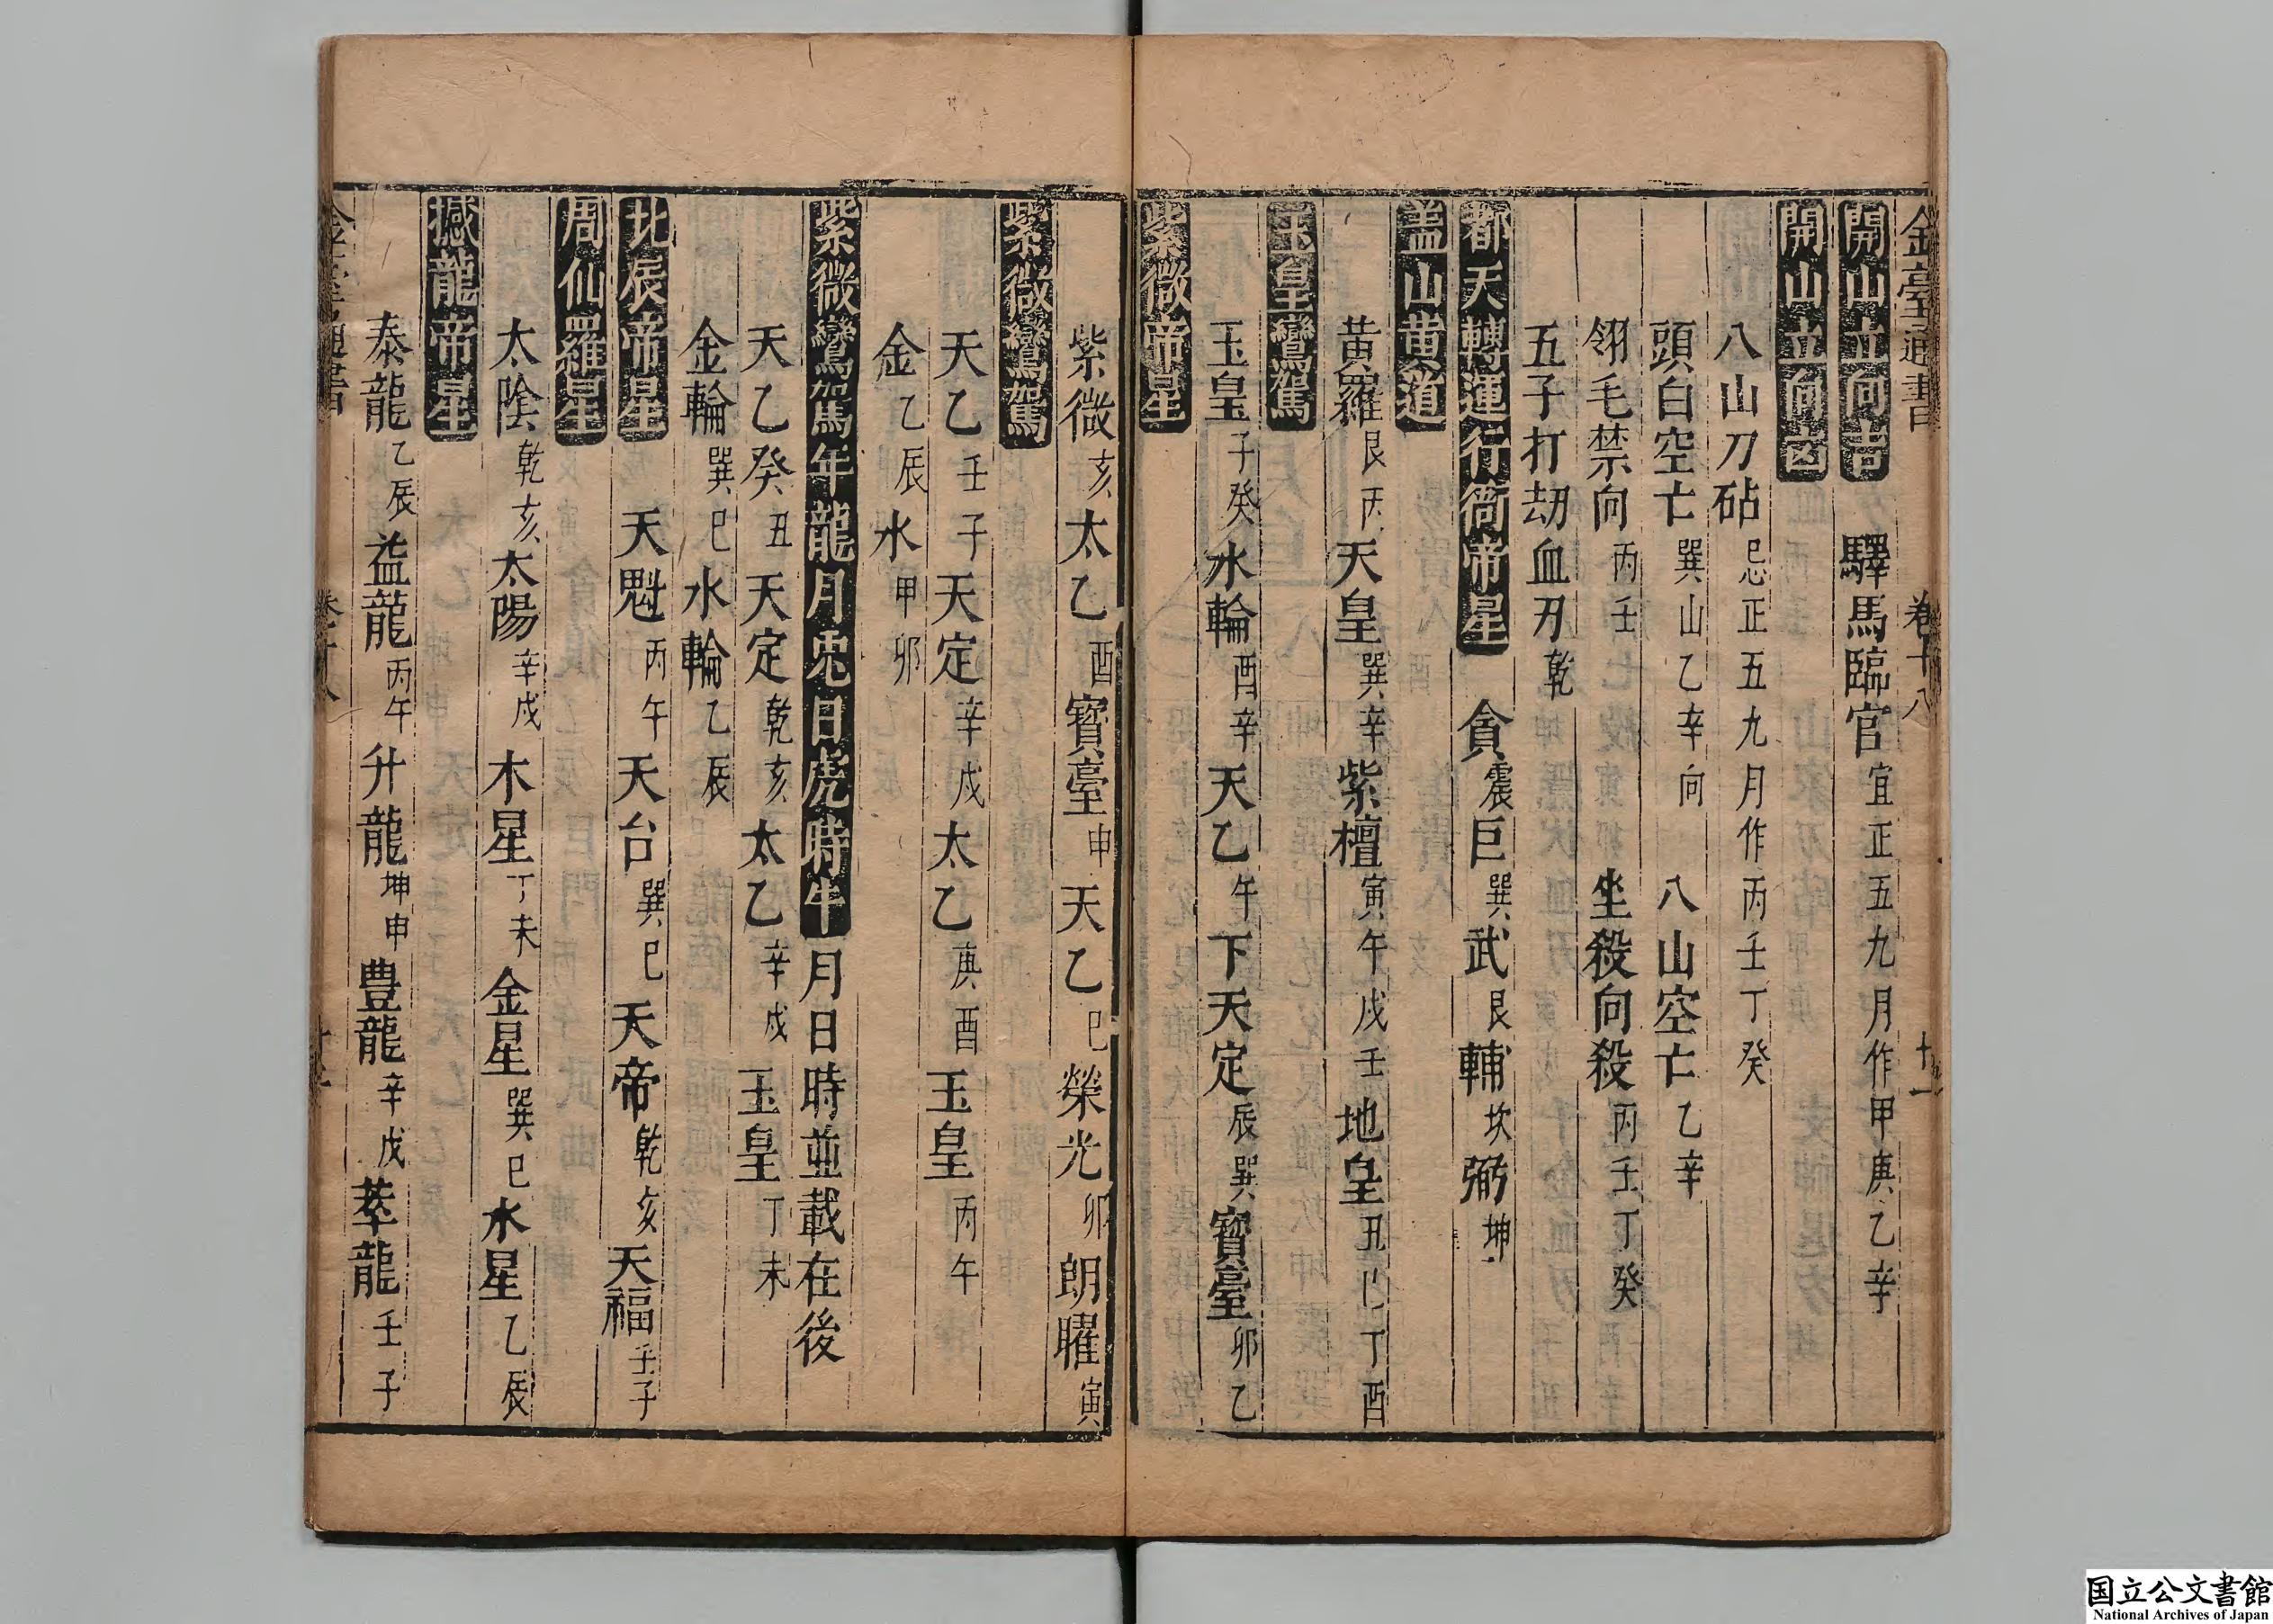 金臺通書 卷十八 十一
開山立向吉 驛馬臨官宜正五九月作甲庚乙辛
開山立向凶
八山刀砧忌正五九月作丙壬丁癸
頭白空亡巽山乙辛向 八山空亡乙辛
翎毛禁向丙壬 坐殺向殺丙壬丁癸
五子打劫血刃乾
都天轉運行衙帝星 貪震巨巽武艮輔坎弼坤
盖山黄道
黄羅艮丙天皇巽辛紫檀寅午戌壬地皇丑巳丁酉
玉皇鸞駕
玉皇子癸水輪酉辛天乙午下天定辰巽寳臺卯乙
紫微帝星
紫微亥太乙酉寳臺申天乙巳榮光卯朗曜寅
紫微鸞駕
天乙壬子天定辛戌太乙庚酉玉皇丙午
金乙辰水甲卯
紫微鸞駕年龍月兎日虎時牛月日時並載在後
天乙癸丑天定乾亥太乙辛戌玉皇丁未
金輪巽巳水輪乙辰
北辰帝星 天魁丙午天台巽巳天帝乾亥天福壬子
周仙羅星
太陰乾亥太陽辛戌木星丁未金星巽巳水星乙辰
撼龍帝星
泰龍乙辰益龍丙午升龍坤申豊龍辛戌萃龍壬子
国立公文書館
National Archives of Japan